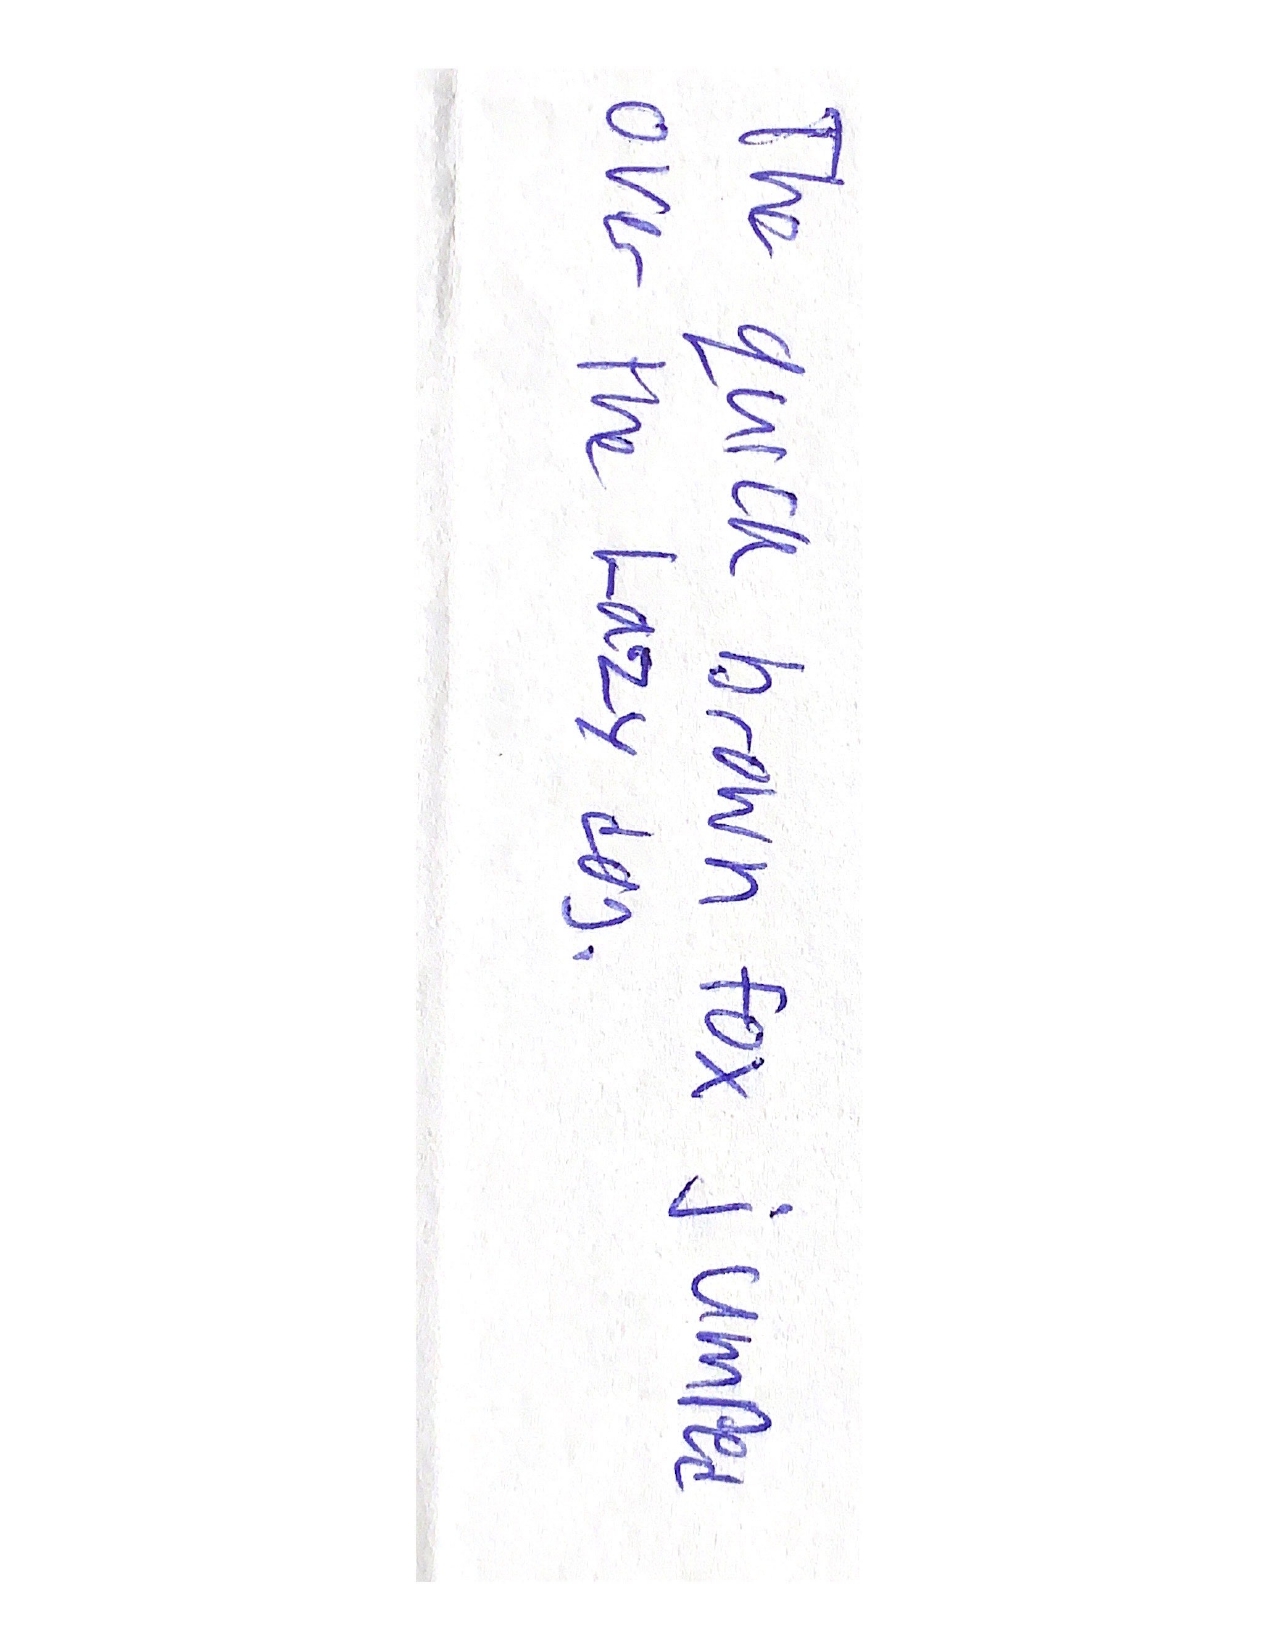 The quick brown fox jumped
over the Lazy dog.